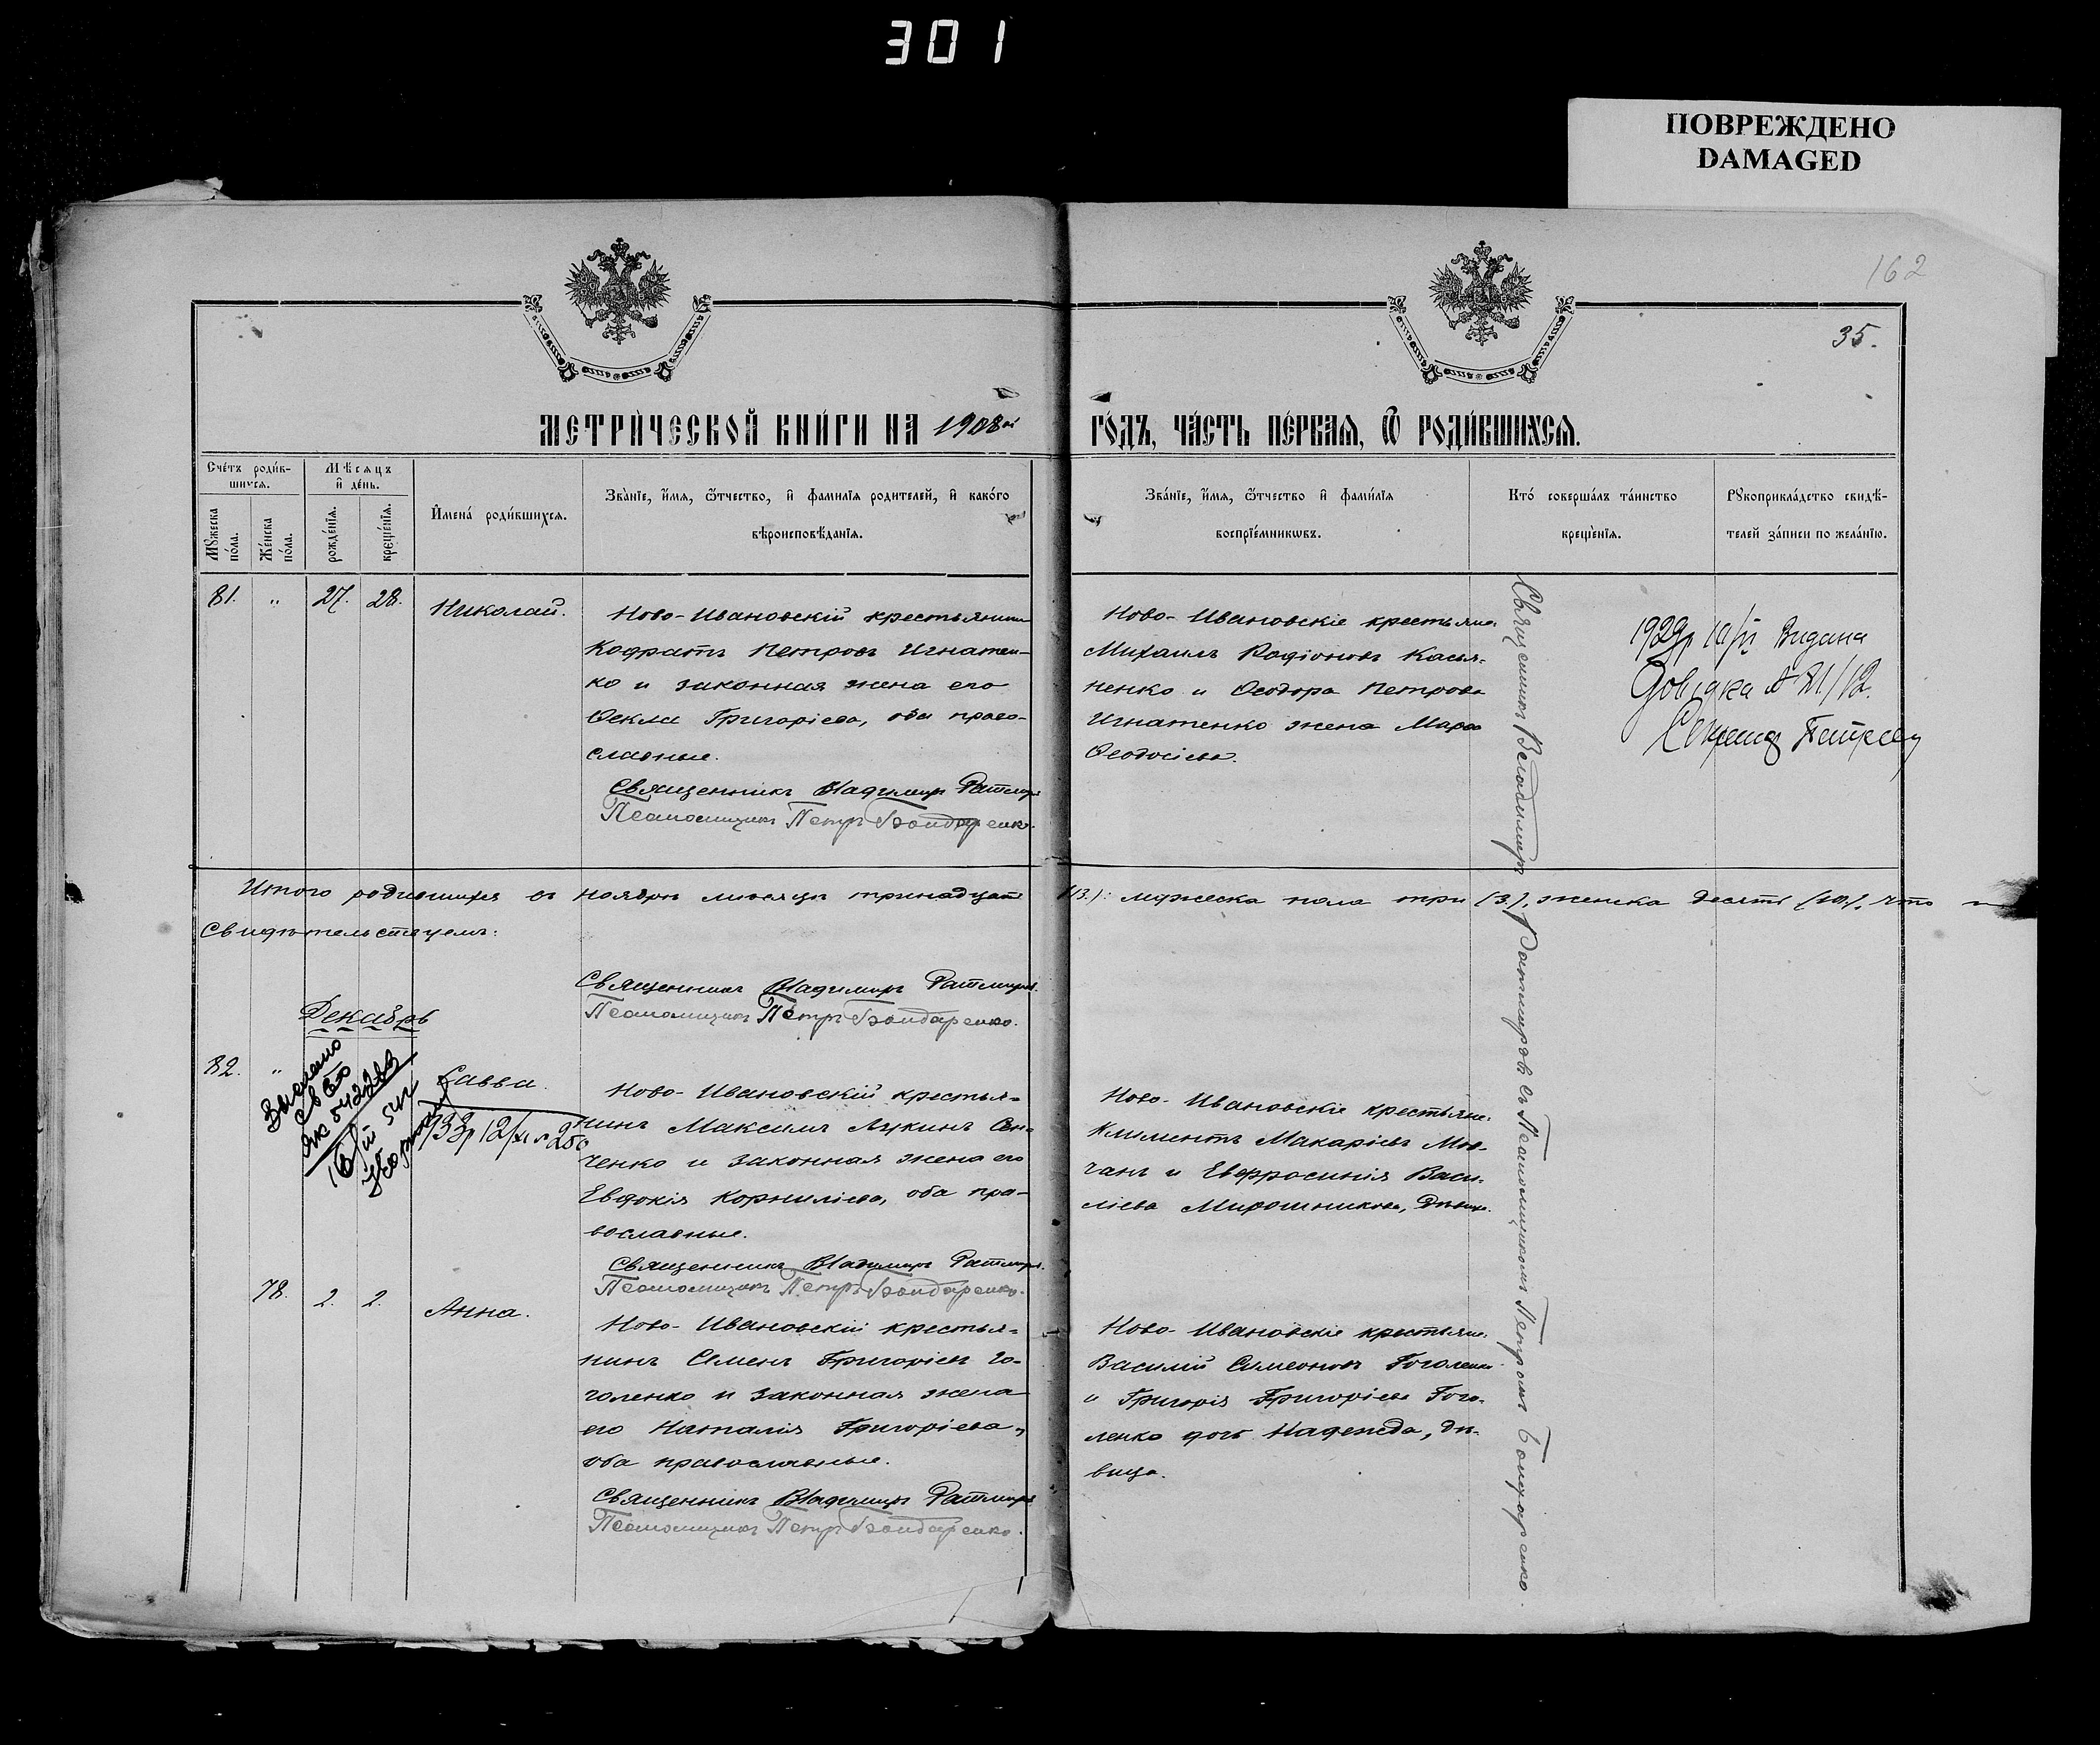 301
ПОВРЕЖДЕНО
DAMAGED
162
35.
МЕТРИЧЕСКОЙ КНИГИ НА 1908й ГОДЪ, ЧАСТЬ ПЕРВАЯ, Ѿ РОДИВШИХСЯ.
Счетъ родив-
шихся.
Мѣсяцъ
и день.
Мужеска
пола.
Женска
пола.
рожденія.
крещенія.
Имена родившихся.
Званіе, имя, ѿтчество, и фамилія родителей, и какого
вѣроисповѣданія.
Званіе, имя, ѿтчество и фамилія
воспріемникѡвъ.
Кто совершалъ таинство
крещенія.
Рукоприкладство свидѣ-
телей записи по желанію.
81. " 27. 28. Николай.
Ново-Ивановскій крестьянинъ
Кодратъ Петровъ Игнатен-
ко и законная жена его
Ѳекла Григоріева, оба право-
славные.
Священникъ Владимиръ Ратмировъ
Псаломщикъ Петръ Бондаренко.
Ново-Ивановскіе крестьяне:
Михаилъ Родіоновъ Касья-
ненко и Ѳеодора Петрова
Игнатенко жена Марфа
Ѳеодосіева.
1929р Видана
Довідка
Итого родившихся въ ноябрѣ мѣсяцѣ тринадцать (13.): мужеска пола три (3.), женска десять (10.), что
свидѣтельствуемъ:
Священникъ Владимиръ Ратмировъ
Псаломщикъ Петръ Бондаренко.
Декабрь
82. " Савва.
1933р 12/XI № 250
Ново-Ивановскій крестья-
нинъ Максимъ Лукинъ Сен-
ченко и законная жена его
Евдокія Корниліева, оба пра-
вославные.
Священникъ Владимиръ Ратмировъ.
Псаломщикъ Петръ Бондаренко.
Ново-Ивановскіе крестьяне:
Климентъ Макаріевъ Мов-
чанъ и Евфросинія Васи-
ліева Мирошникова, дѣвица.
78. 2. 2. Анна.
Ново-Ивановскій крестья-
нинъ Семенъ Григоріевъ Го-
голенко и законная жена
его Наталія Григоріева,
оба православные.
Священникъ Владимиръ Ратмировъ
Псаломщикъ Петръ Бондаренко.
Ново-Ивановскіе крестьяне:
Василій Симеоновъ Гоголенко
и Григорія Григоріева Гого-
ленко дочь Надежда, дѣ-
вица.
Священникъ Владимиръ Ратмировъ съ Псаломщикомъ Петромъ Бондаренко.